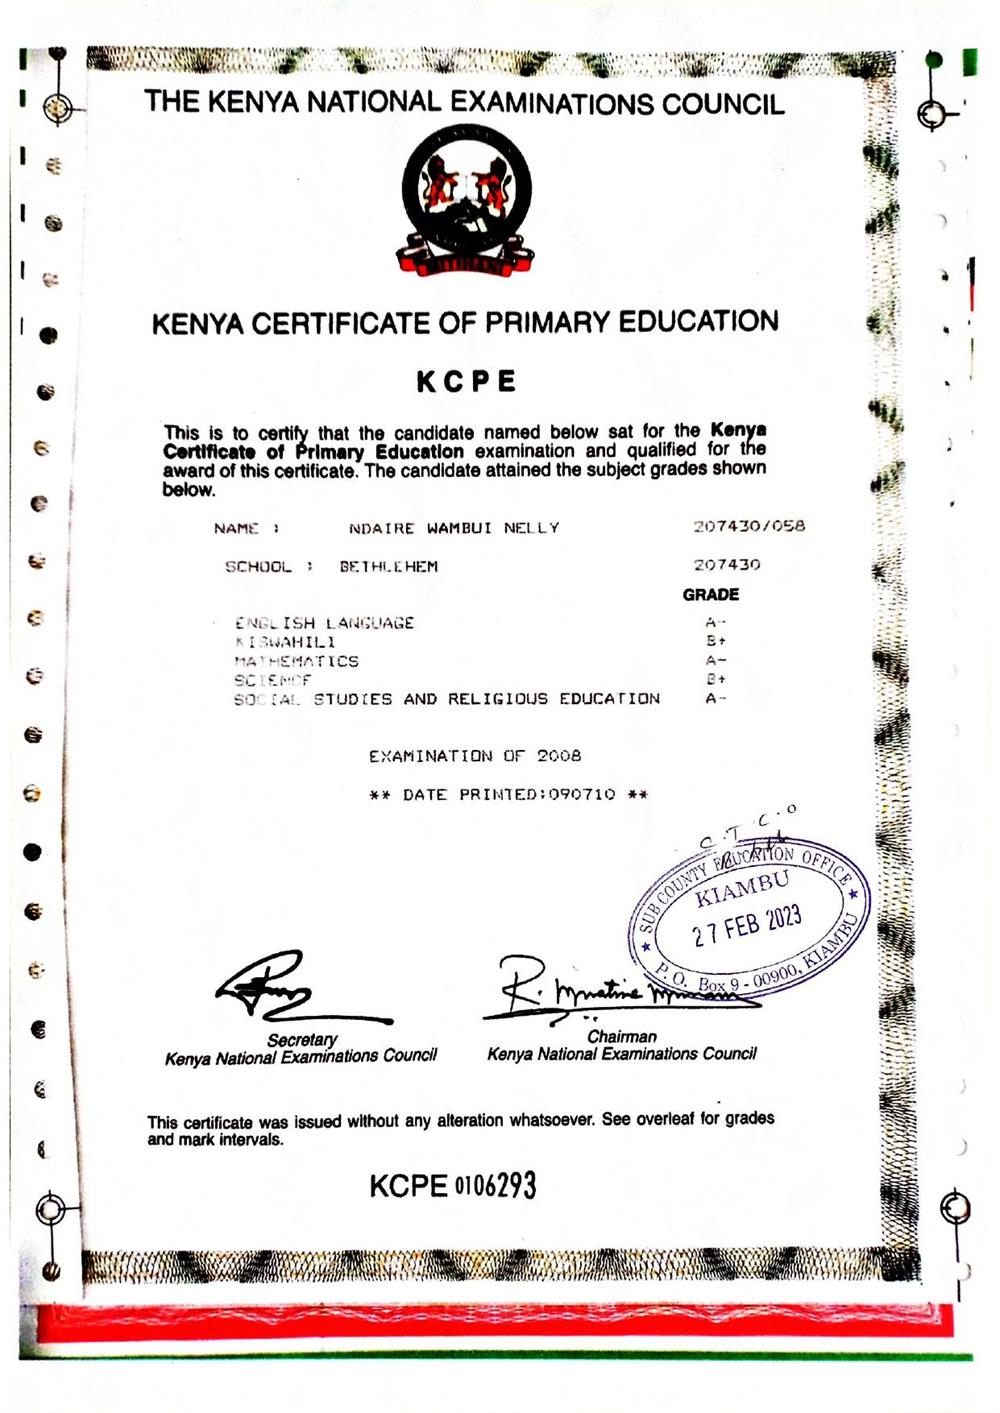 THE KENYA NATIONAL EXAMINATIONS COUNCIL
KENYA CERTIFICATE OF PRIMARY EDUCATION
KCPE
This is to certify that the candidate named below sat for the Kenya
Certificate of Primary Education examination and qualified for the
award of this certificate. The candidate attained the subject grades shown
below.
NAME : NDAIRE WAMBUI NELLY 207430/058
SCHOOL : BETHLEHEM 207430
GRADE
ENGLISH LANGUAGE A-
KISWAHILI B+
MATHEMATICS A-
SCIENCE B+
SOCIAL STUDIES AND RELIGIOUS EDUCATION A-
EXAMINATION OF 2008
** DATE PRINTED:090710 **
C.T.C.O
SUB COUNTY EDUCATION OFFICE
KIAMBU
27 FEB 2023
P.O. Box 9 - 00900, KIAMBU
Secretary
Kenya National Examinations Council
Chairman
Kenya National Examinations Council
This certificate was issued without any alteration whatsoever. See overleaf for grades
and mark intervals.
KCPE 0106293